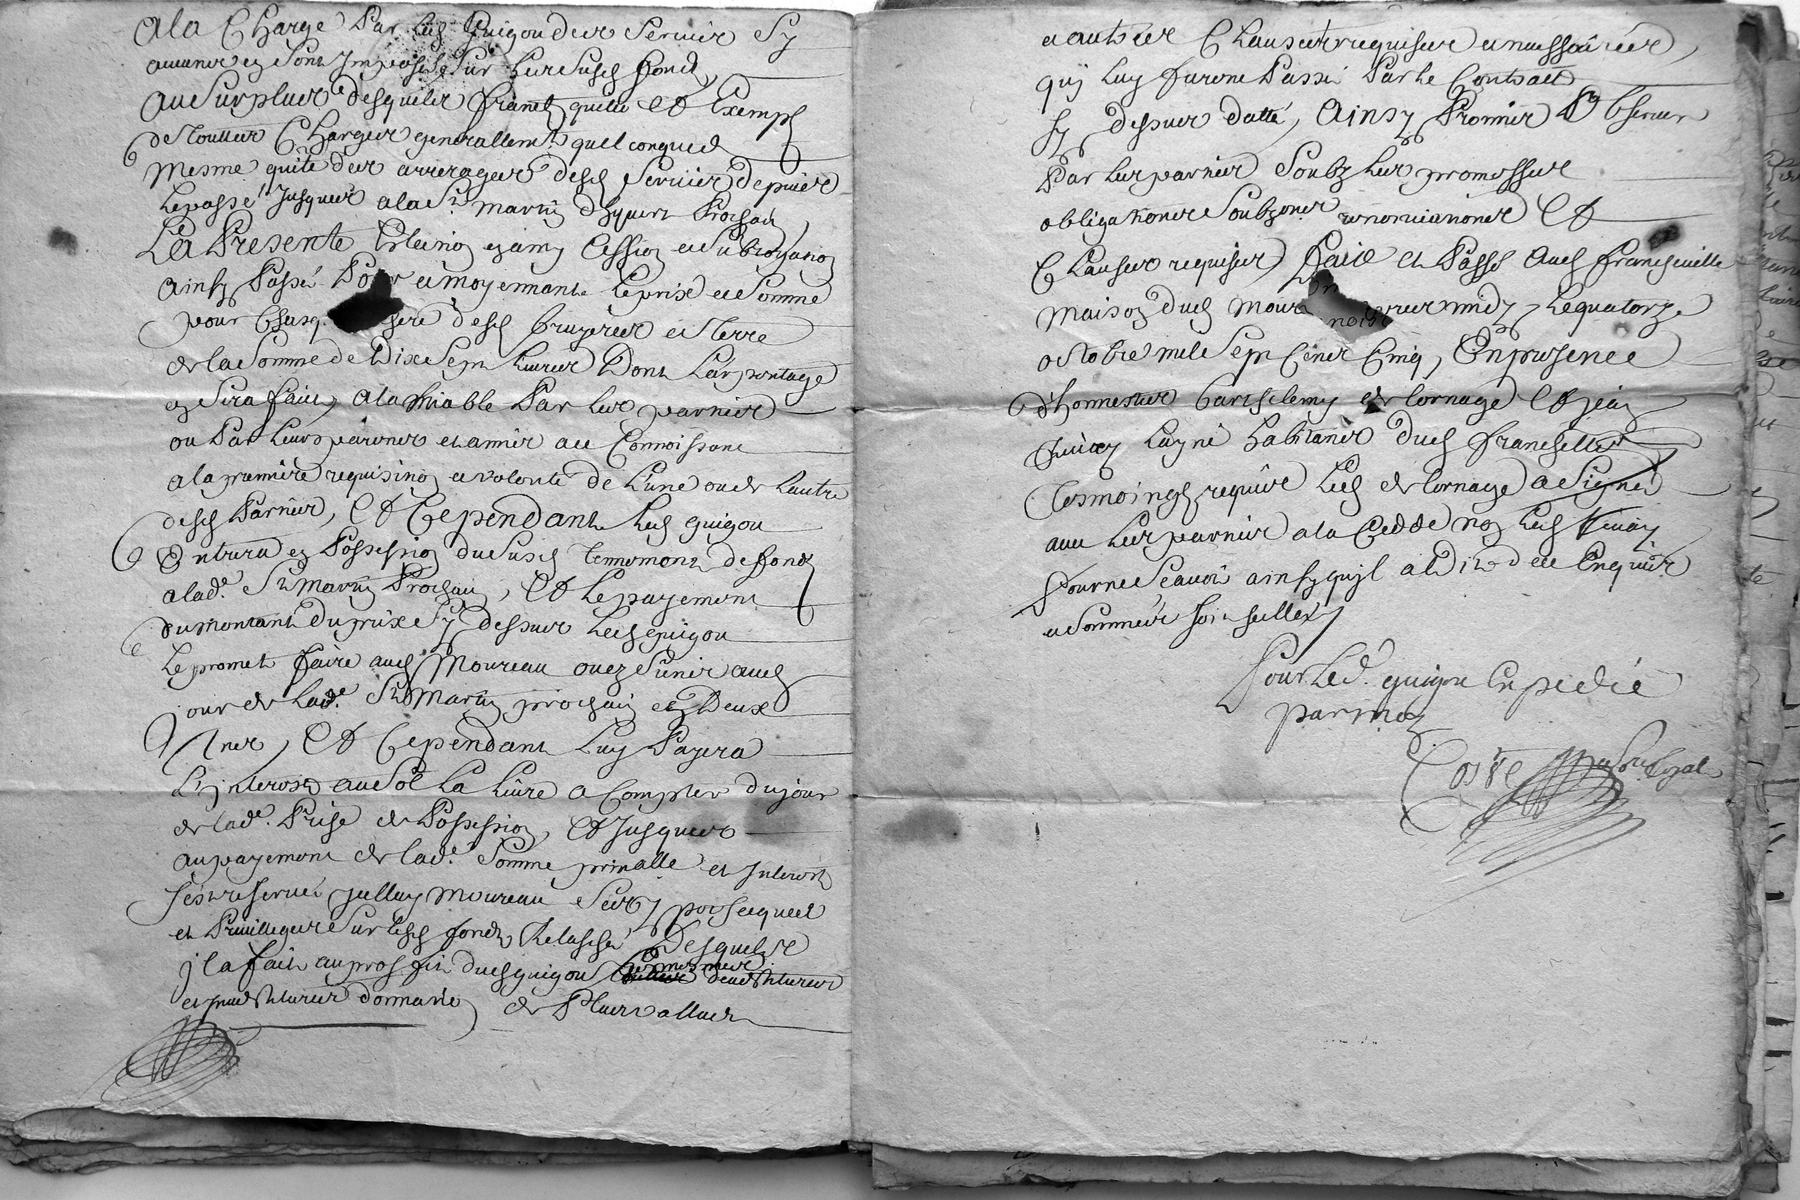 a la Charge Par led guigou des servir sy
aucuner en sont Imposés sur leur susd fondz
au surpluer desqueler francq quitte et Exempt
de touttes Charger generallemt quelconqued
mesme quite der arrerager desd servier depuier
lepassé Jusquer a la St martin d'hyvert Prochain
La Presente cession et subrogation
ainsy Passé Pour et moyennant le prix et somme
pour Chasq. desd bruyerer et Terre
de la somme de Dix sept livrer Dont l'arpentage
en sera fait, alamiable Par ler partier
ou Par leurs et amier a ce Connoissant
a la premiere requisition et volonté de L'une ou de Lautre
desd Partier, et Cependant led guigou
Entrera en Possession du susd tennement de fondz
a lad.e St Martin Prochain, et le payement
du montant du prix sy dessuer led guigou
le promet faire aud Moureau ou ez siener aud
jour de lad.e St Martin prochain en Deux
Aner, et Cependant luy Payera
L'jnterest au sol la livre a Compter du jour
de lad.e Prise de Possession, et Jusquer
au payement de lad.e somme prinalle et Interest
s'est reservé jcelluy moureau sur
et Privilleger sur lesd fondz Relaschés Desqueler
jl a fait au proffit dud guigou devestiturer
et jnvestiturer domanie de Pluer valluer
et autrer Clauser requiser et necessairer,
quj luy furent Passé Par le Contract
sy dessuer datté, Ainsy Promier observer
Par ler partier soubz ler promesser
obligationer renonciationer et
Clauser requiser, faict et Passé aud francheville
maison dud Moureau midy, le quatorze
octobre mil sept cent Cinq, En presence
d'honnester barthelemy de lornage et jean
layné habitaner dud franchevelle
tesmoingz requier led de lornage a signé
avec ler partier a la Cedde non led
pour ne sçavoir ainsy qu'jl a dit de ce Enquier
et sommer soit seellez
Pour led. guigou Expedié
par moy
Coste No.re Royal